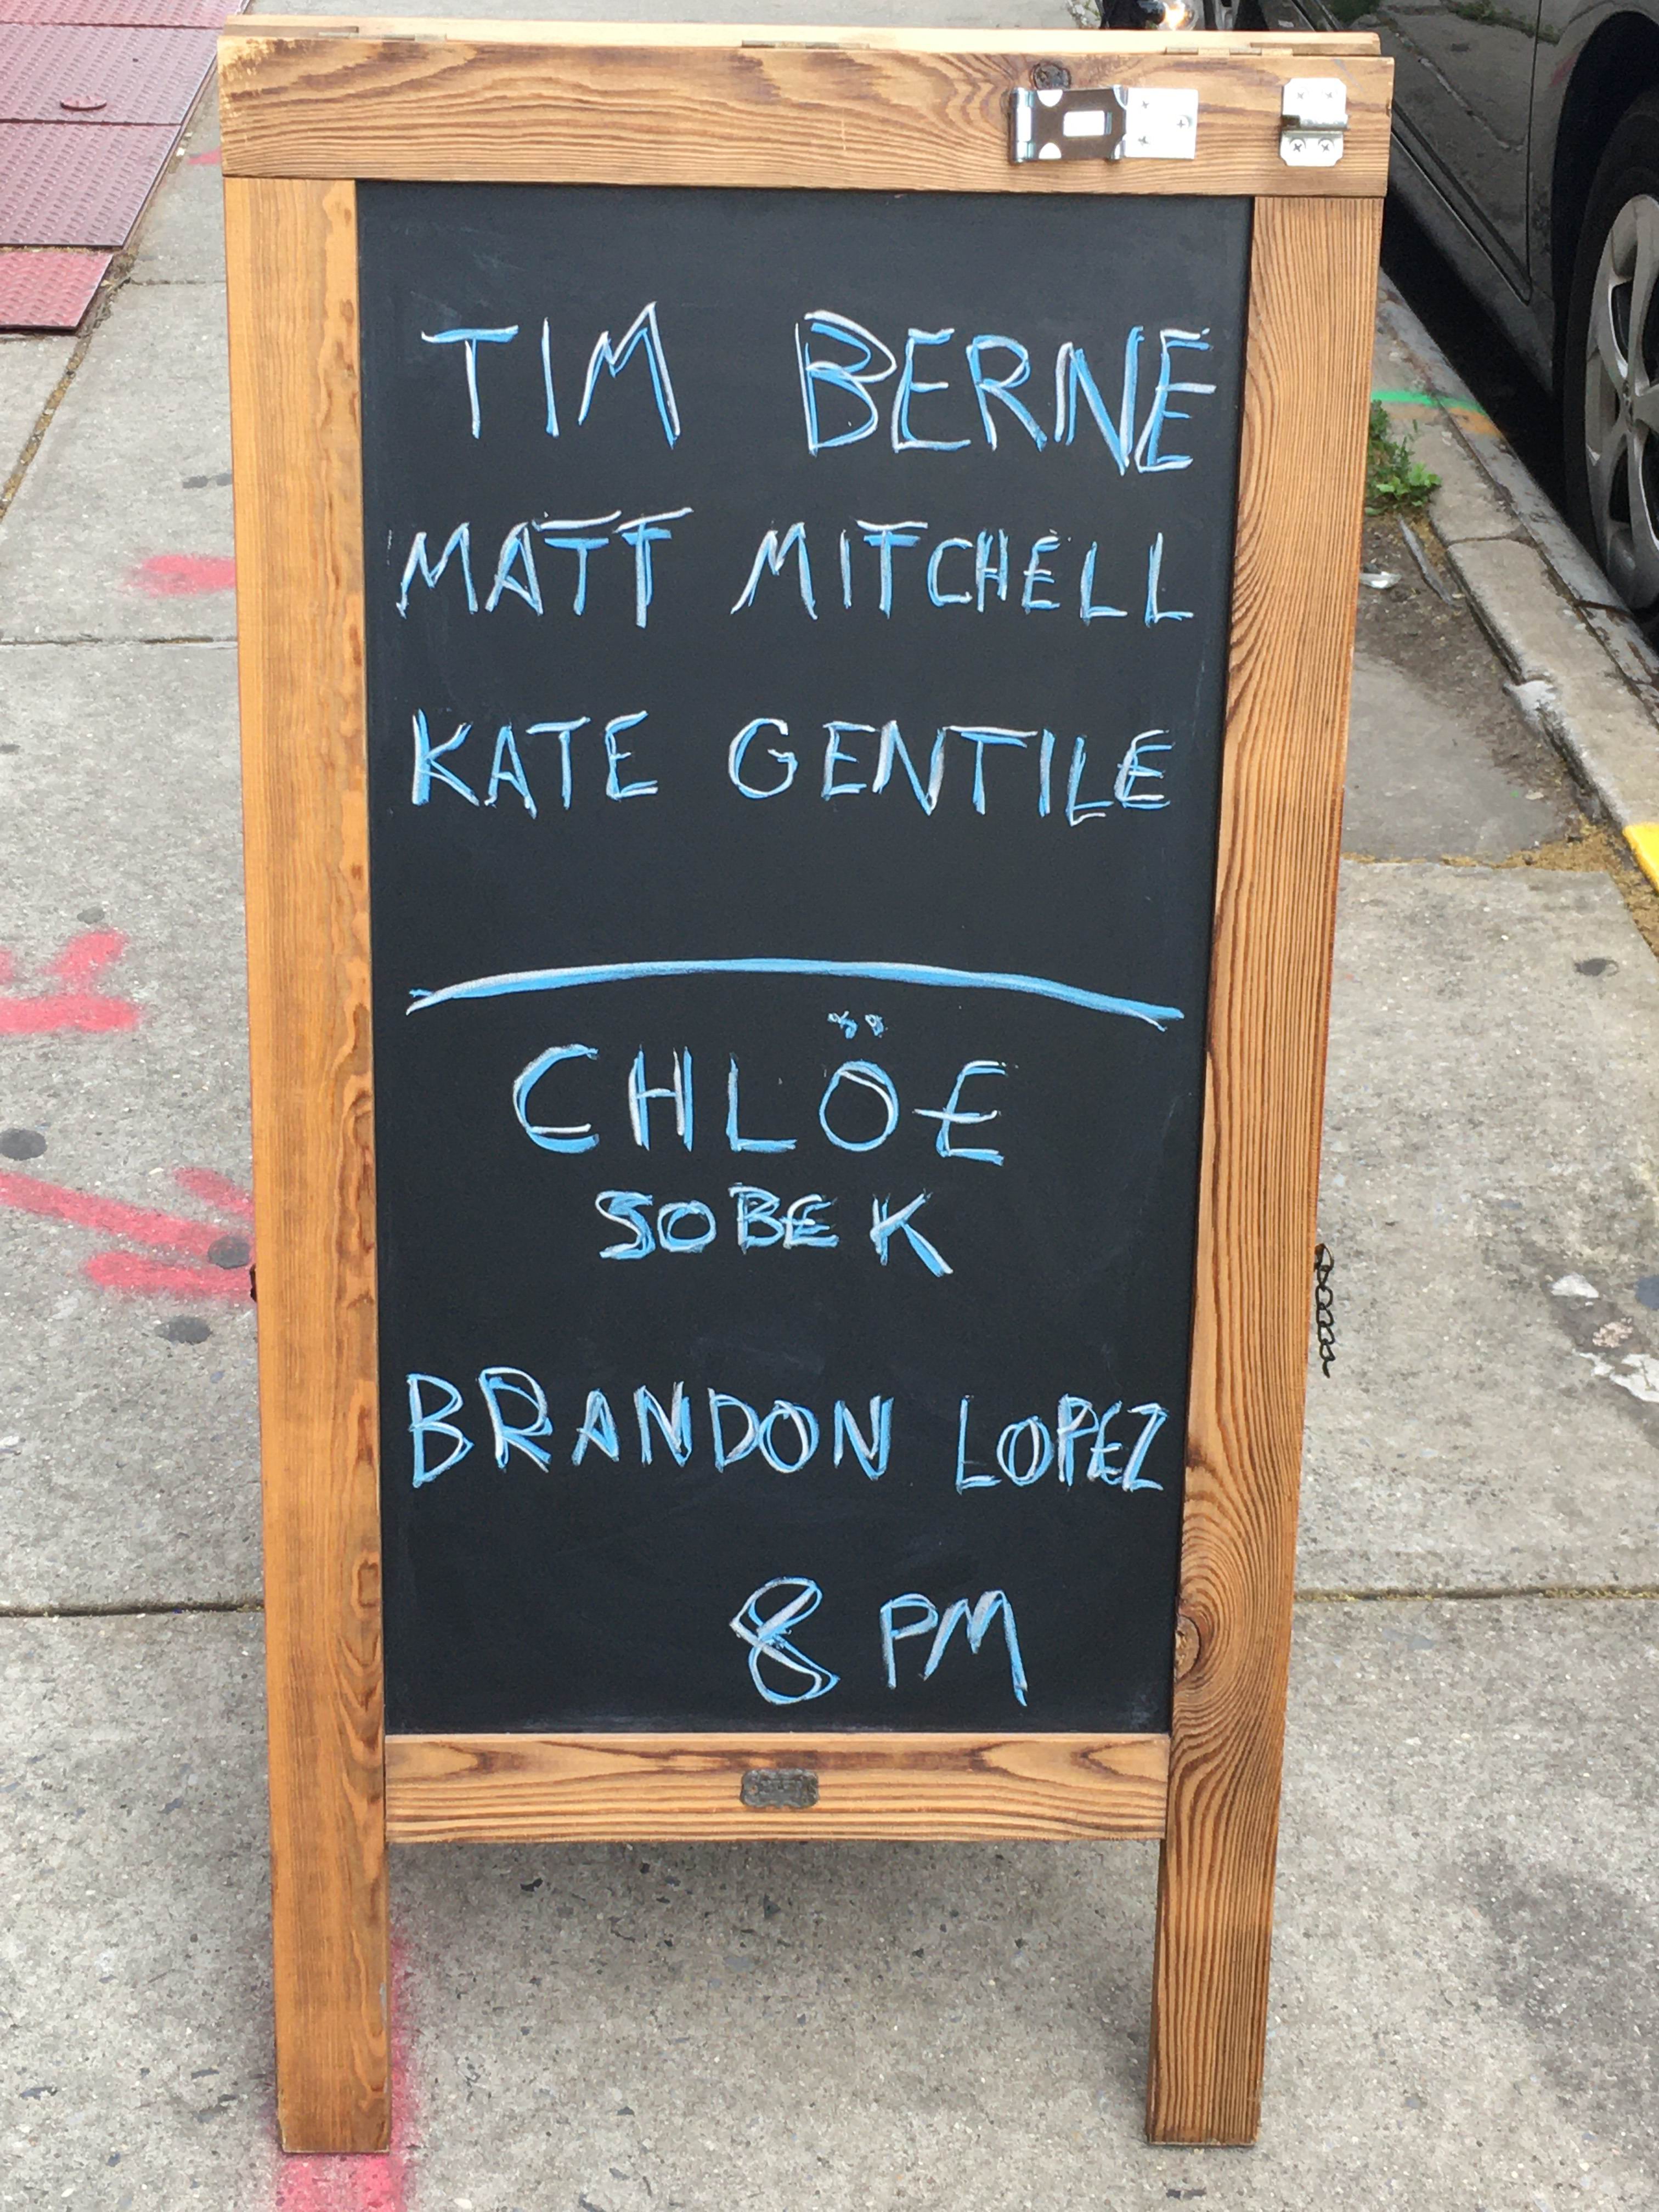 TIM BERNE
MATT MITCHELL
KATE GENTILE
CHLÖE
SOBEK
BRANDON LOPEZ
8 PM